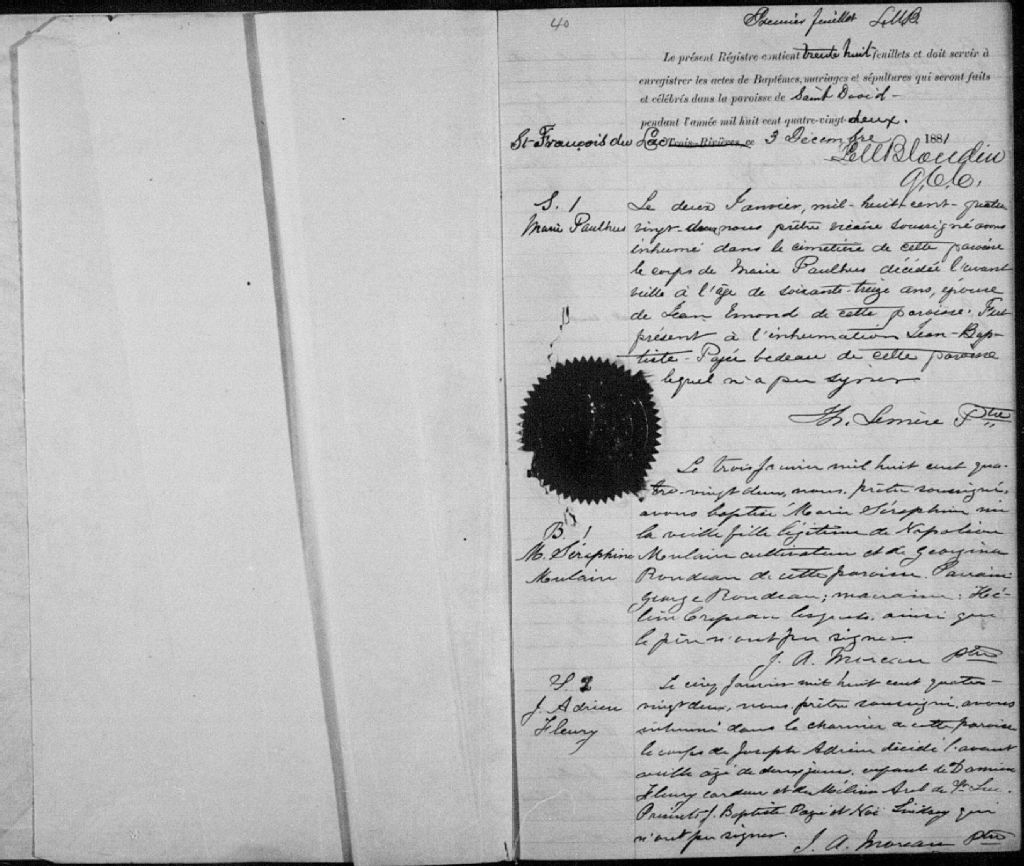 40
Premier feuillet
Le présent Régistre contient trente huit feuillets et doit servir à
enregistrer les actes de Baptêmes, mariages et sépultures qui seront faits
et célébrés dans la paroisse de Saint David -
pendant l'année mil huit cent quatre-vingt-deux.
St-François du Lac Trois-Rivières, ce 3 Décembre 1881
S. 1
Marie Paulhus
Le deux Janvier, mil-huit-cent-quatre
vingt-deux, nous prêtre vicaire soussigné avons
inhumé dans le cimetière de cette paroisse
le corps de Marie Paulhus décédée l'avant
veille à l'âge de soixante-treize ans, épouse
de Jean Emond de cette paroisse. Fut
présent à l'inhumation Jean-Bap-
tiste bedeau de cette paroisse
lequel n'a pu signer
Ptre
B. 1
M. Séraphine
Moulain
Le trois janvier mil huit cent qua-
tre-vingt deux, nous, prêtre soussigné,
avons baptisé Marie Séraphine née
la veille fille légitime de Napoléon
Moulain cultivateur et de Georgina
Rondeau de cette paroisse. Parrain
George Rondeau; marraine: Hé-
lesquels, ainsi que
le père n'ont pu signer
J. A. Moreau ptre
S. 2
J. Adrien
Fleury
Le cinq Janvier mil huit cent quatre-
vingt deux, nous, prêtre soussigné, avons
inhumé dans le charnier de cette paroisse
le corps de Joseph Adrien décédé l'avant
veille agé de deux jours, enfant de Damien
Fleury et de
J. Baptiste et qui
n'ont pu signer.
J. A. Moreau ptre